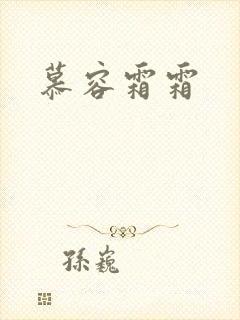 慕容霜霜
孫巍